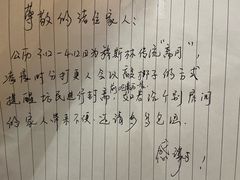 尊敬的诸位家人：
公历3.12-4.12日为穆斯林传统“斋月”，
凌晨时分打更人会以敲梆子的方式
提醒坊民进行封斋，如若给个别房间
的家人带来不便，还请多多包涵
感谢！